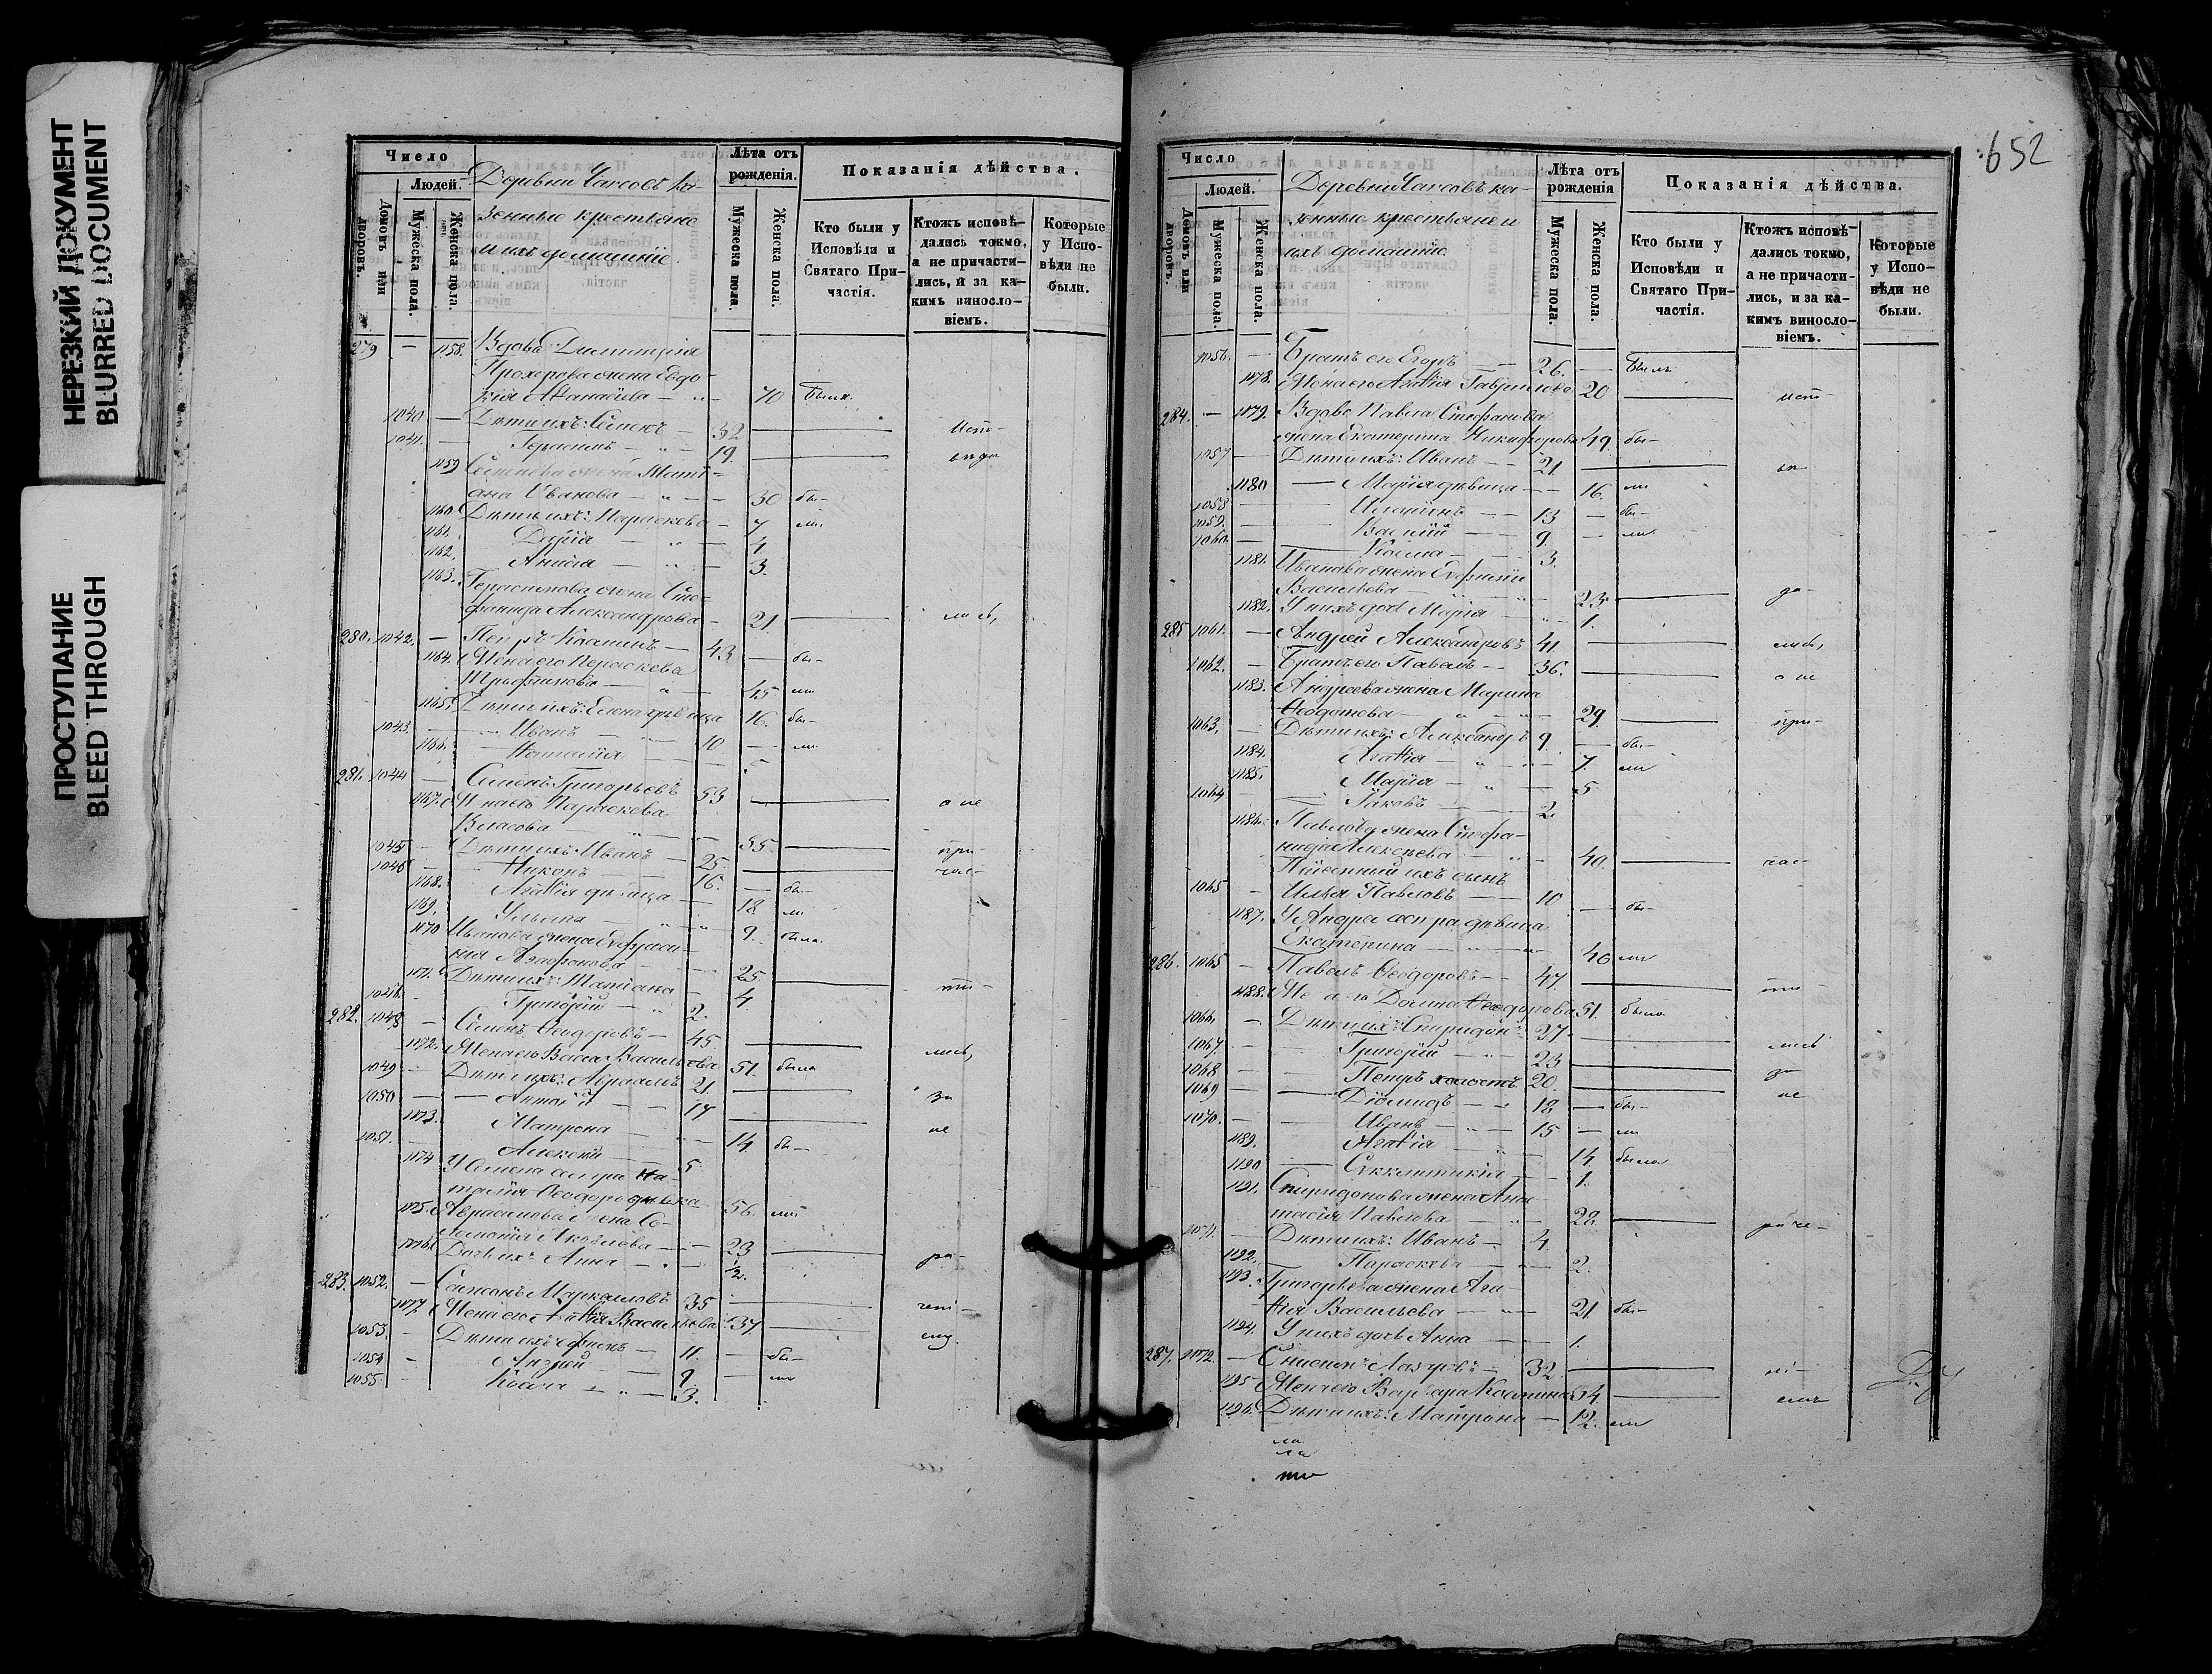 НЕРЕЗКИЙ ДОКУМЕНТ
BLURRED DOCUMENT
ПРОСТУПАНИЕ
BLEED THROUGH
Число
Людей.
Домовъ или дворовъ.
Мужеска пола.
Женска пола.
Деревни Чагсовъ ка-
зенные крестьяне
и ихъ домашніе.
Лѣта отъ рожденія.
Мужеска пола
Женска пола.
Показанія дѣйства.
Кто были у Исповѣди и Святаго Причастія.
Ктожъ исповѣдались токмо, а не причастились, и за какимъ винословіемъ.
Которые у Исповѣди не были.
279 — 1158. Вдова Димитрія
Прохорова жена Евдо-
кія Аѳанасіева — 70 была
1040 — Дѣти ихъ: Семенъ — 32
1041. — Герасимъ — 19.
1159 Семенова жена Тати-
ана Иванова — 30 бы-
1160 Дѣти ихъ: Параскева — 7 ли
1161. Дарія — 4
1162. Анисія — 3.
1163. Герасимова жена Сте-
фанида Александрова — 21
280. 1042. — Петръ Косминъ — 43 — бы-
1164. Жена его Параскева
Трифонова — 45 ли
1165. Дѣти ихъ: Елена дѣвица 16. бы-
1043. — Иванъ — 10 — ли
1166. Наталія — 5
281. 1044 — Семенъ Григорьевъ 53 а не
1167. Жена его Параскева
Власова — 55 при-
1045 — Дѣти ихъ: Иванъ — 25 час-
1046 — Никонъ — 16. — бы-
1168. Агаѳія дѣвица — 18 ли
1169. Ульяна — 9. была.
1170 Иванова жена Евфроси-
нія Агафонова — 25. ти-
1171. Дѣти ихъ: Татіана — 4.
1046. Григорій — 2.
282. 1048 — Семенъ Ѳеодоровъ — 45. лись,
1172. Жена его Васса Васильева 51. была
1049 — Дѣти ихъ: Авраамъ 21. за
1050 — Антоній — 17 не
1173. Матрона — 14 бы-
1051. — Алексѣй — 5
1174 У Семена сестра На-
талія Ѳеодоро дѣвка 56. ли
1175. Авраамова жена Со-
ломонія Яковлева — 23 ра-
1176. Дочь ихъ Анна — 1/2.
283. 1052. — Самсонъ Маркелловъ 35 чені-
1177. Жена его Агаѳія Васильева 37 ему.
1053. — Дѣти ихъ — 11. — бы-
1054 — Андрей — 9. — ли
1055 — Косма — 3.
652
Число
Людей.
Домовъ или дворовъ.
Мужеска пола.
Женска пола.
Деревни Чагсовъ ка-
зенные крестьяне и
ихъ домашніе.
Лѣта отъ рожденія
Мужеска пола.
Женска пола.
Показанія дѣйства.
Кто были у Исповѣди и Святаго Причастія.
Ктожъ исповѣдались токмо, а не причастились, и за какимъ винословіемъ.
Которые у Исповѣди не были.
1056. — Братъ его Егоръ — 26. — былъ
1178. Жена его Агаѳія Гаврилова 20
284. — 1179. Вдова Павла Стефанова
жена Екатерина Никифорова 49. бы-
1057 — Дѣти ихъ: Иванъ — 21
1180 — Марія дѣвица — 16. ли
1058 — Иларіонъ — 13 — бы-
1059. — Василій — 9 — ли
1060. — Косма — 3.
1181. Иванова жена Евфимія
Васильева — 23 да-
1182. У нихъ дочь Марія — 1.
285 1061. — Андрей Александровъ 41 лись,
1062. — Братъ его Павелъ — 36. а не
1183. Андреева жена Марина
Ѳеодотова — 29. при-
1063. — Дѣти ихъ: Александръ 9 — бы-
1184. Агаѳія — 7. ли
1185. Марія — 5
1064 — Іаковъ — 2.
1186. Павлова жена Стефа-
нида Алексѣева — 40. час-
Пріемный ихъ сынъ
1065 — Илья Павловъ — 10 — бы-
1187. У Андрея сестра дѣвица
Екатерина — 40 ли
286. 1065 — Павелъ Ѳеодоровъ — 47. ти-
1188. Жена его Домна Ѳеодорова 51. была
1066. — Дѣти ихъ: Спиридонъ 27. лись
1067. — Григорій — 23 за
1068 — Петръ холостъ 20. не
1069 — Діомидъ — 18 — бы-
1070. — Иванъ — 15 — ли
1189. Агаѳія — 14 была
1190 Сѵнклитикія — 1.
1191. Спиридонова жена Анас-
тасія Павлова — 28. раче-
1071. — Дѣти ихъ: Иванъ — 4
1192. Параскева — 2.
1193. Григорьева жена Ага-
ѳія Васильева — 21. бы-
1194. У нихъ дочь Анна — 1.
287. 1072. — Лазаревъ — 32 ні-
1195 Жена его Варвара Космина 34. емъ
1196. Дѣти ихъ: Матрона — 12. ли
ла
ла
ти